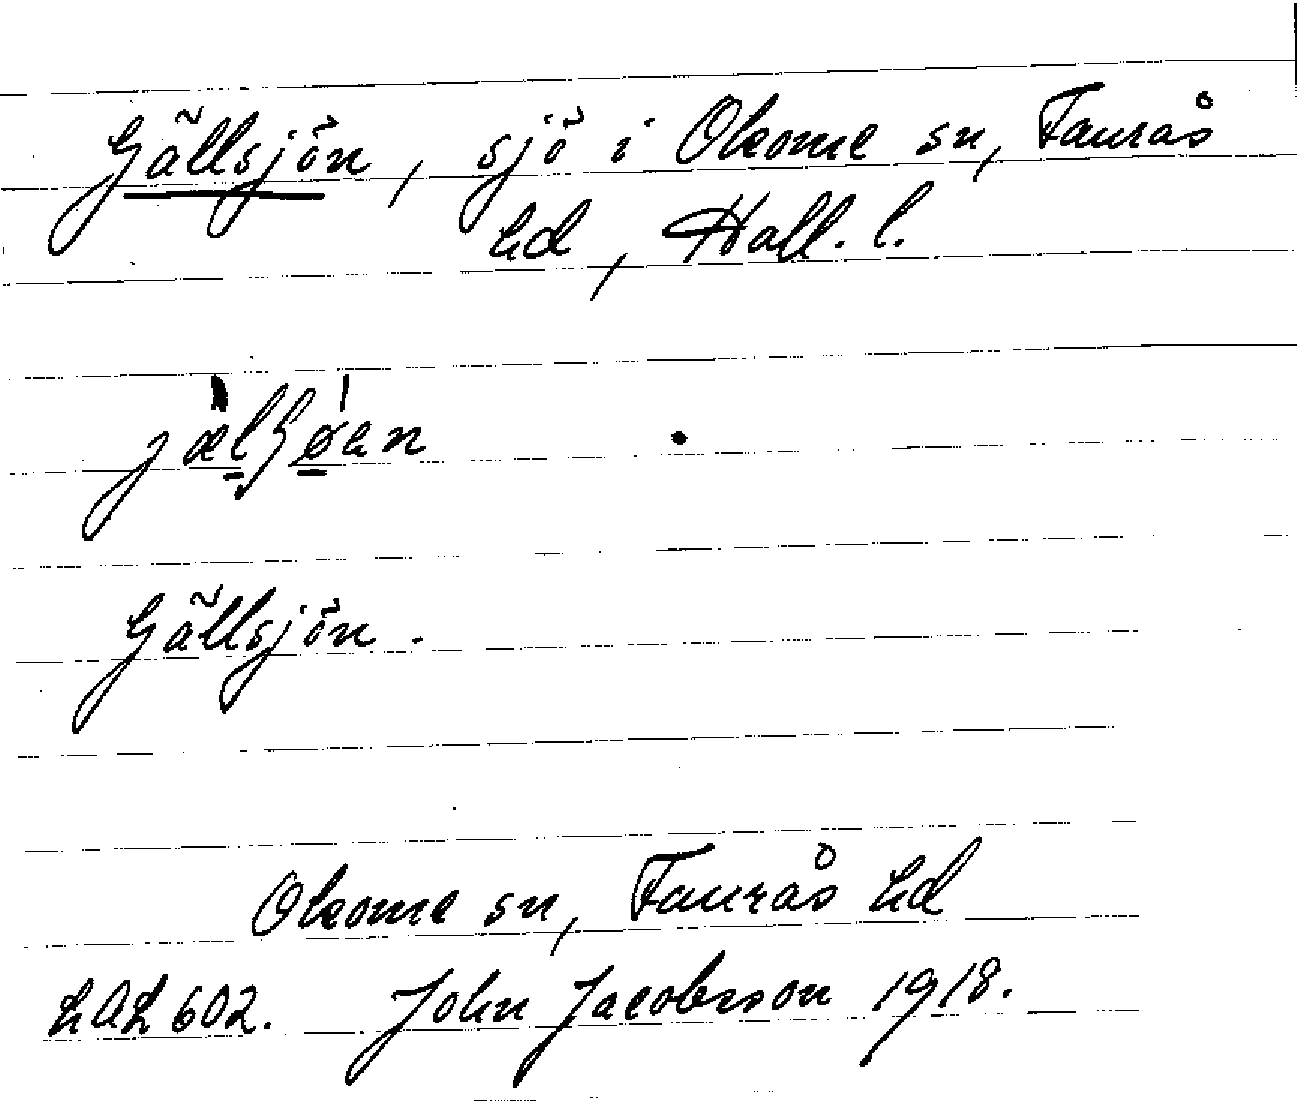 Gällsjön, sjö i Okome sn, Faurås
hd, Hall. l.
Gällsjön.
Okome sn, Faurås hd
LAL 602. John Jacobsson 1918.